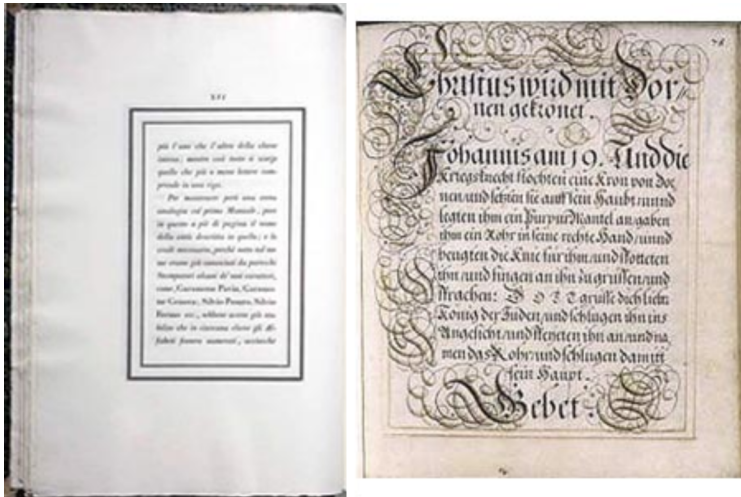 XVI
più l'uno che l'altro della classe
intesa; mentre così tosto si scorge
quello che più o meno lettere com-
prende in una riga.
Per mantenere però una certa
analogia col primo Manuale, pure
in questo a piè di pagina il nome
della città descritta in quello; e lo
credei necessario, perchè
erano già conosciuti da parecchi
Stampatori alcuni de' miei caratteri,
come, Garamone Pavia, Garamo-
ne Genova, Silvio Pesaro, Silvio
Fermo ecc., sebbene avessi già sta-
bilito che in ciascuna classe gli Al-
fabeti fossero numerati, accioechè
76
Christus wird mit Dor-
nen gekrönet.
Johannis am 19. Und die
Kriegsknecht flochten eine Kron von Dor
nen/und setzten sie auff sein Haubt/unnd
legten ihm ein PurpurMantel an/gaben
ihm ein Rohr in seine rechte Hand/unnd
beugten die Knie für ihm/und spotteten
ihn/und fingen an ihn zu grüssen/und
sprachen: GOTT grüsse dich lieber
König der Juden/und schlugen ihn ins
Angesicht/und speyeten ihn an/und na
men das Rohr/und schlugen damit
sein Haupt.
Gebet.